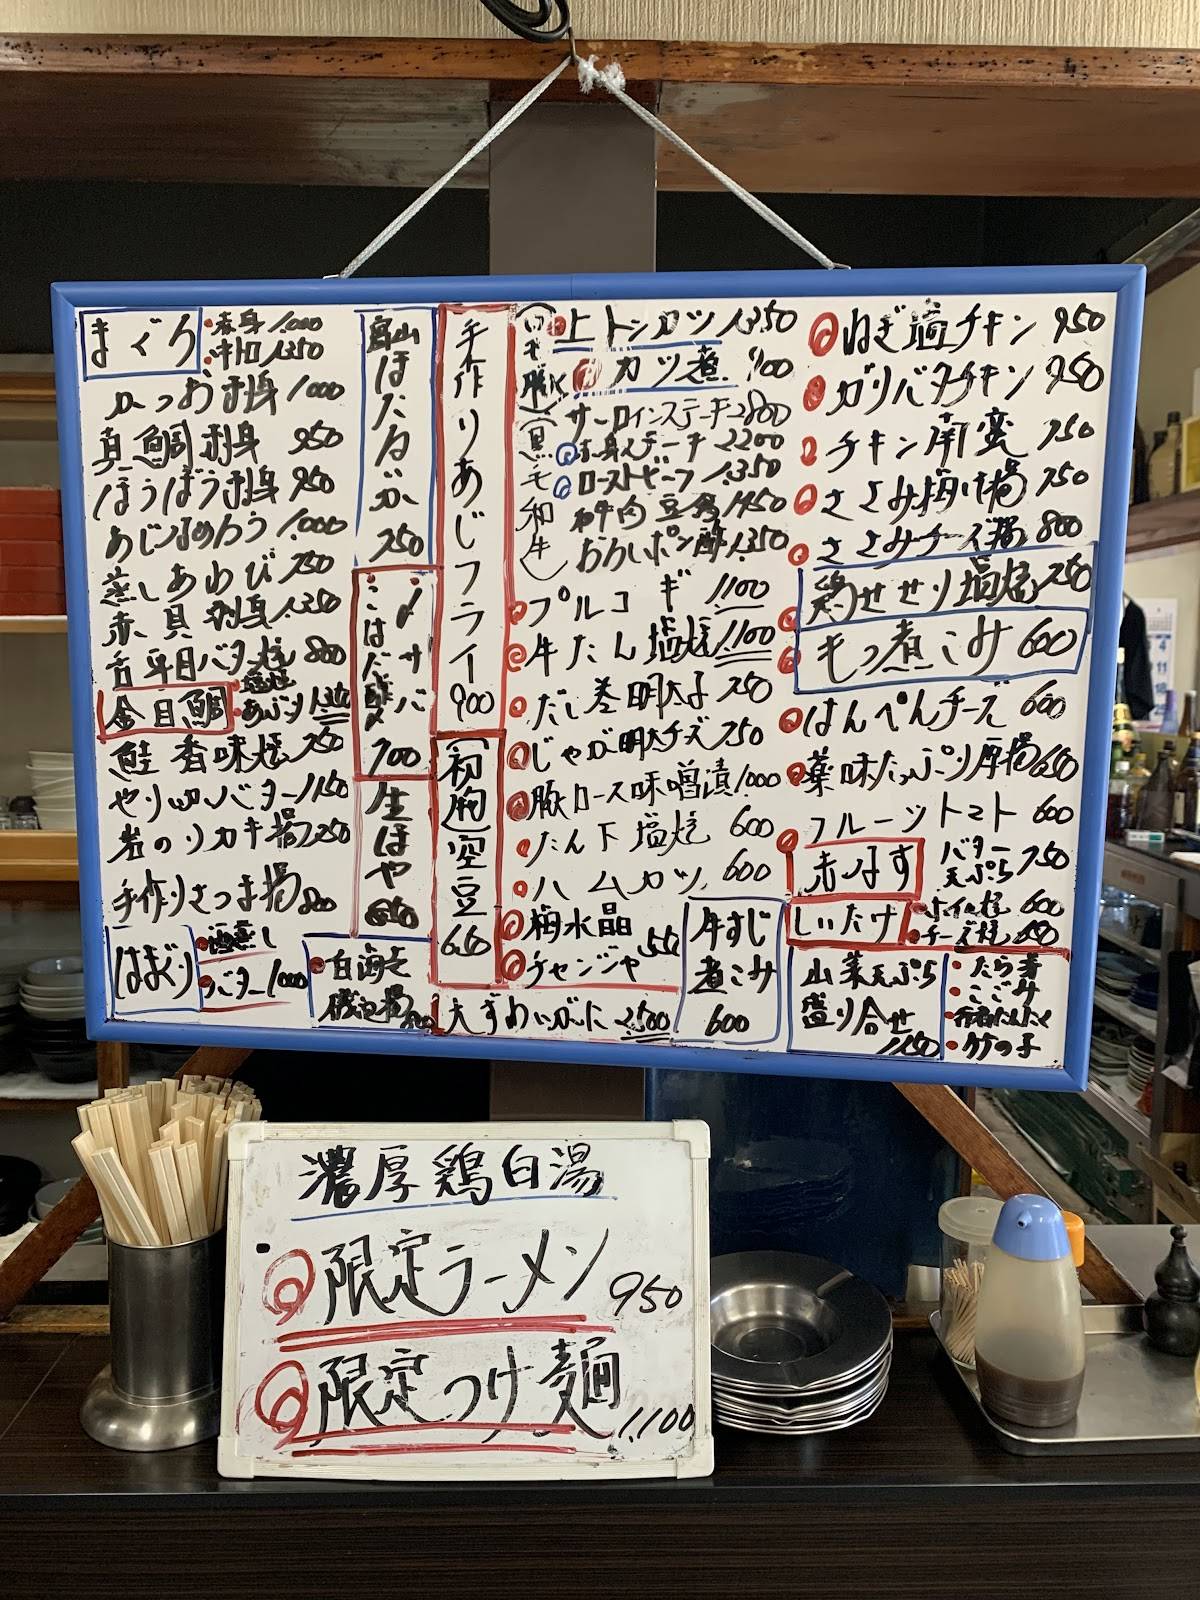 まぐろ
赤身 1.000
中トロ 1.350
かつお刺身 1.000
真鯛刺身 950
ほうぼう刺身 950
あじなめろう 1.000
蒸しあわび 750
赤貝刺身 1.350
舌平目バター焼 800
金目鯛
塩焼
あぶり 1.350
鮭香味焼 750
やりいかバター 1150
岩のりカキ揚 750
手作りさつま揚 800
はまぐり
酒蒸し
バター 1000
富山ほたるいか 750
〆サバ
こはだ酢〆
700
生ほや 650
白海老
磯辺揚
手作りあじフライ 900
(初物)空豆 650
上トンカツ 1.350
カツ煮 900
(黒毛和牛)
サーロインステーキ 2800
赤身ステーキ 2200
ローストビーフ 1.350
和牛肉豆腐 1450
おろしポン酢 1.350
プルコギ 1100
牛たん塩焼 1.100
だし巻明太子 750
じゃが明太チーズ 750
豚ロース味噌漬 1.000
たん下塩焼 600
ハムカツ 600
梅水晶
チャンジャ 550
大ずわいがに 2500
牛すじ
煮こみ
600
ねぎ塩チキン 950
ガリバタチキン 950
チキン南蛮 950
ささみ梅しそ揚 750
ささみチーズ揚 800
鶏せせり塩焼 750
もつ煮こみ 600
はんぺんチーズ 600
薬味たっぷり厚揚 650
フルーツトマト 600
赤なす
バター
天ぷら 750
しいたけ
ホイル焼 600
チーズ焼
山菜天ぷら
盛り合せ
1150
たら芽
こごみ
行者にんにく
竹の子
濃厚鶏白湯
限定ラーメン 950
限定つけ麺 1.100